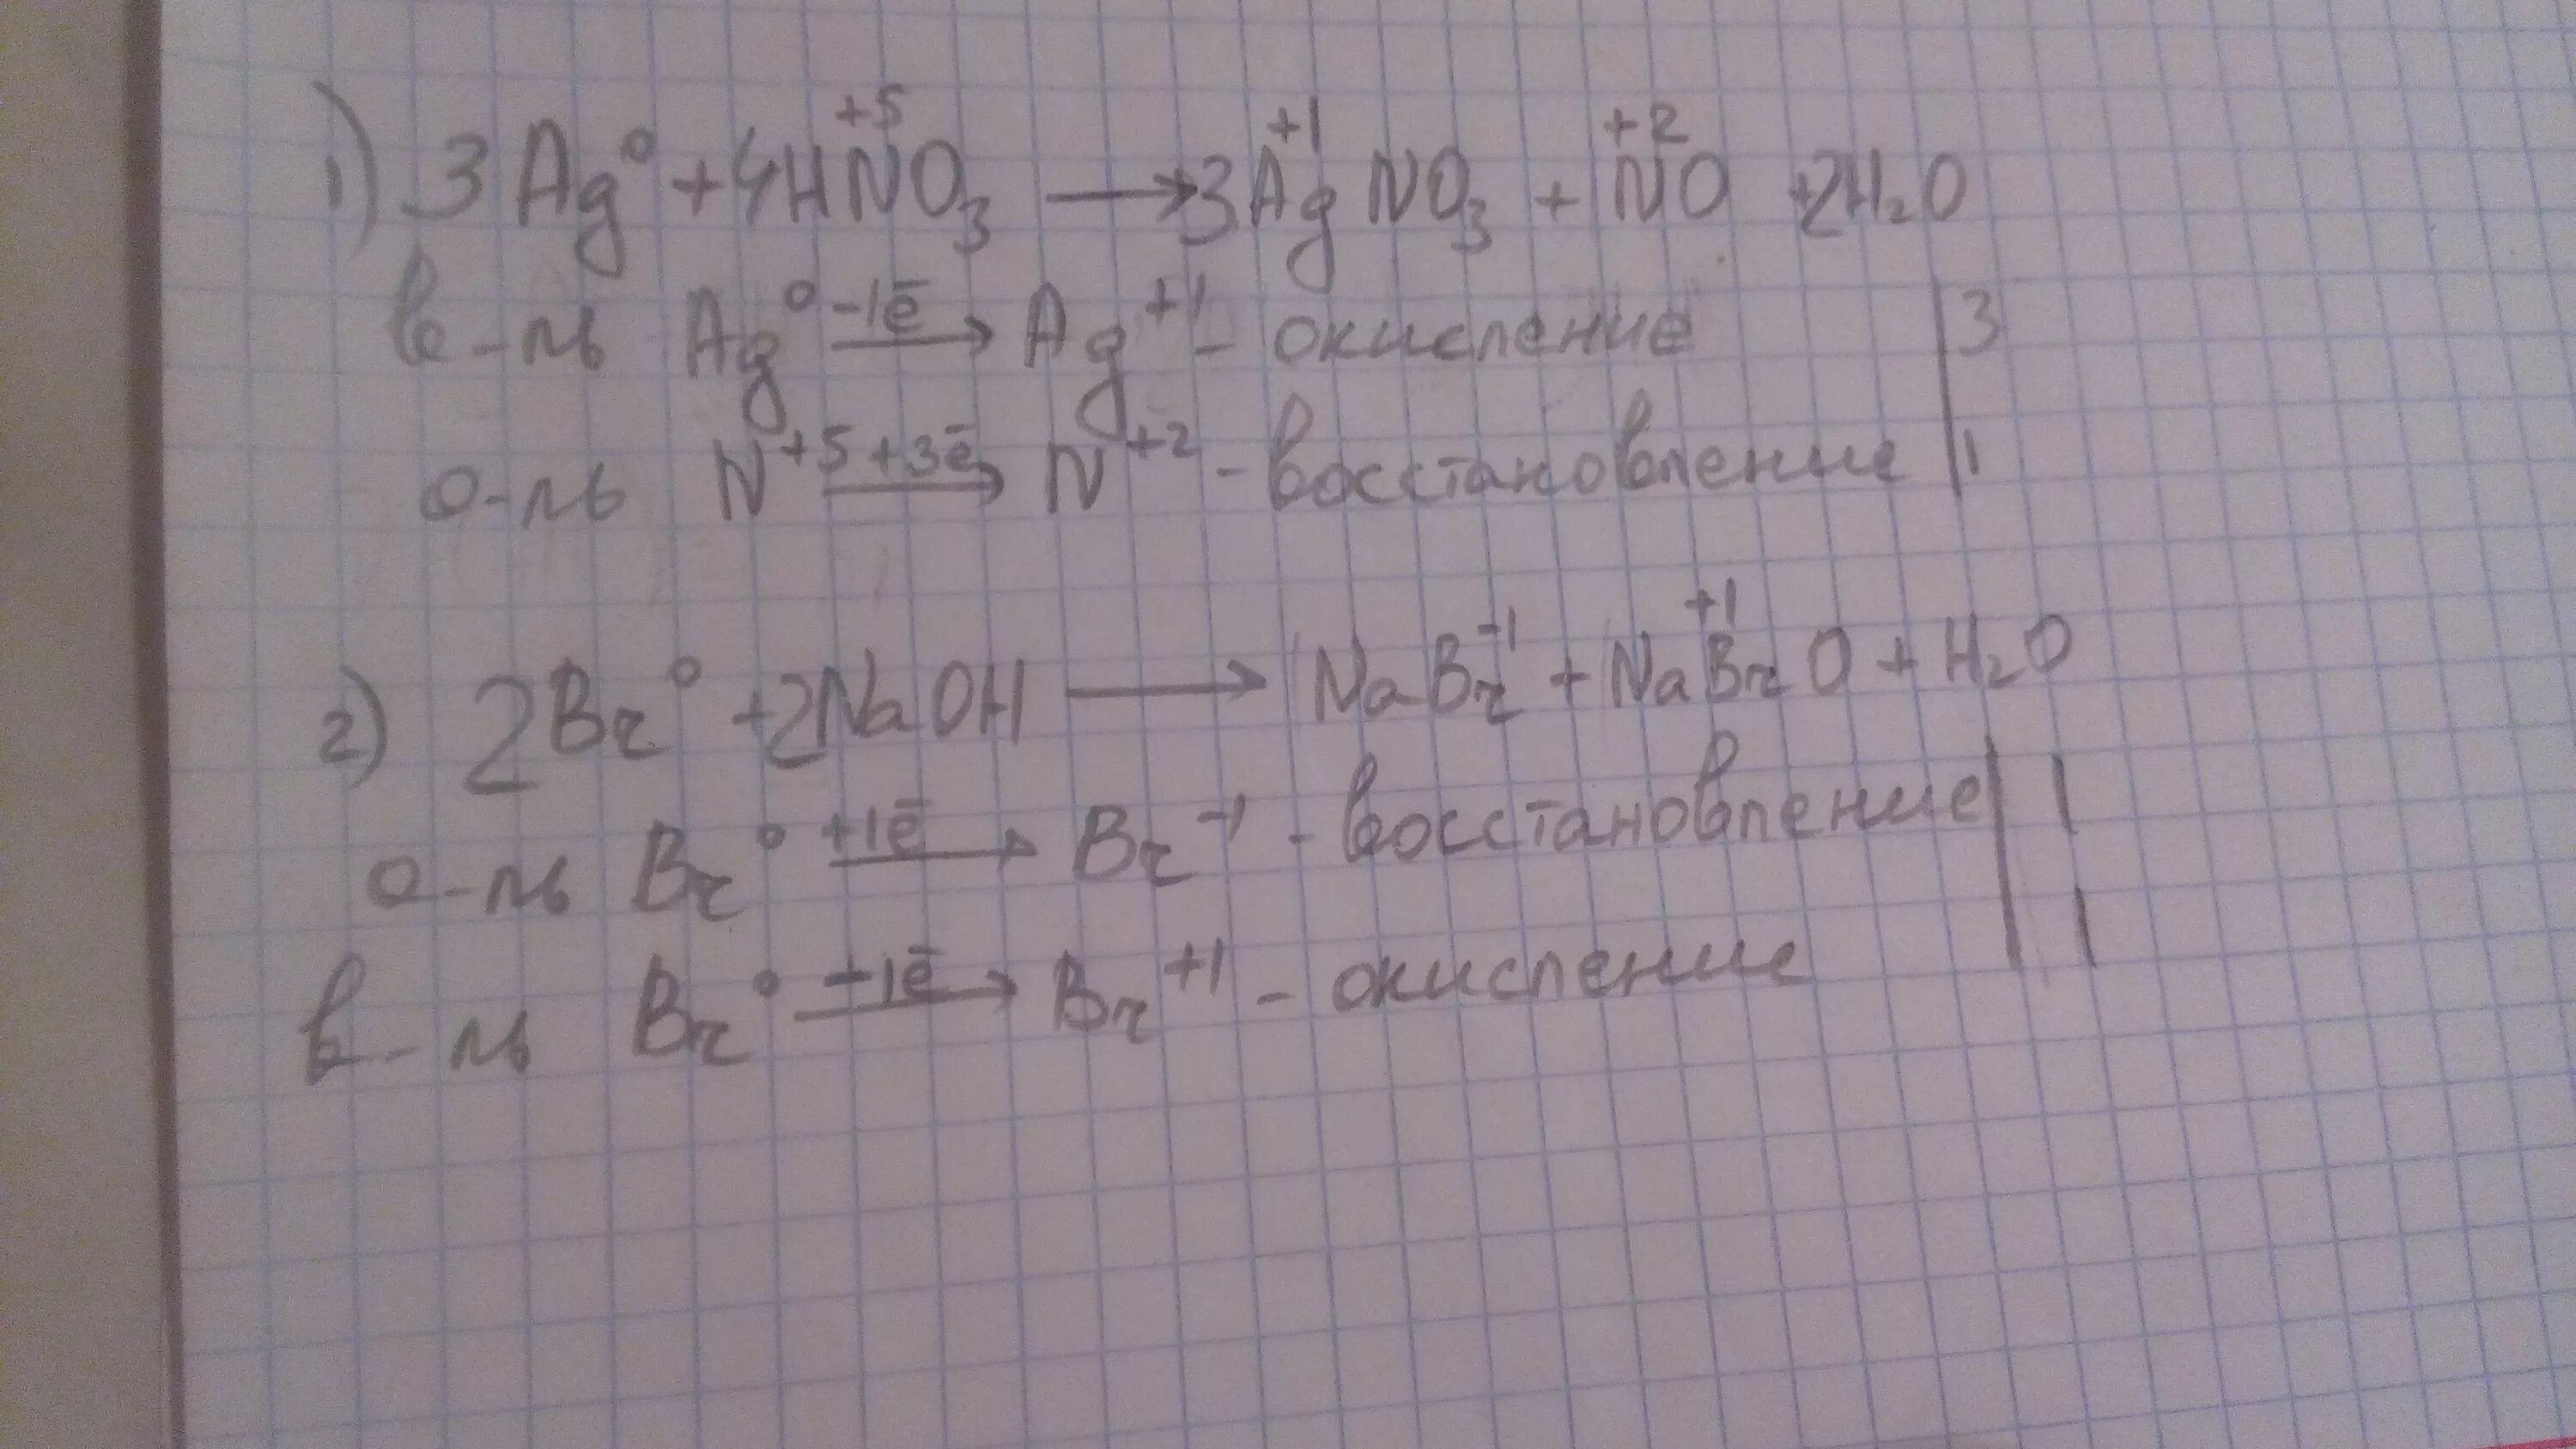 1) 3Ag⁰ + 4HN⁺⁵O₃ → 3Ag⁺¹NO₃ + N⁺²O + 2H₂O
в-ль Ag⁰ –1ē → Ag⁺¹ – окисление | 3
о-ль N⁺⁵ +3ē → N⁺² – восстановление | 1
2) 2Br⁰ + 2NaOH → NaBr⁻¹ + NaBr⁺¹O + H₂O
о-ль Br⁰ +1ē → Br⁻¹ – восстановление | 1
в-ль Br⁰ –1ē → Br⁺¹ – окисление | 1